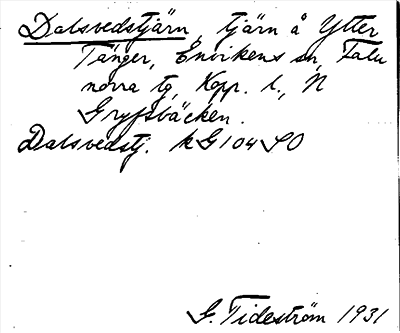 Dalsvedstjärn, tjärn å Ytter
Tänger, Envikens sn, Falu
norra tg, Kopp. l., N
Gryfsbäcken.
Dalsvedstj. kG104SO
G. Tideström 1931